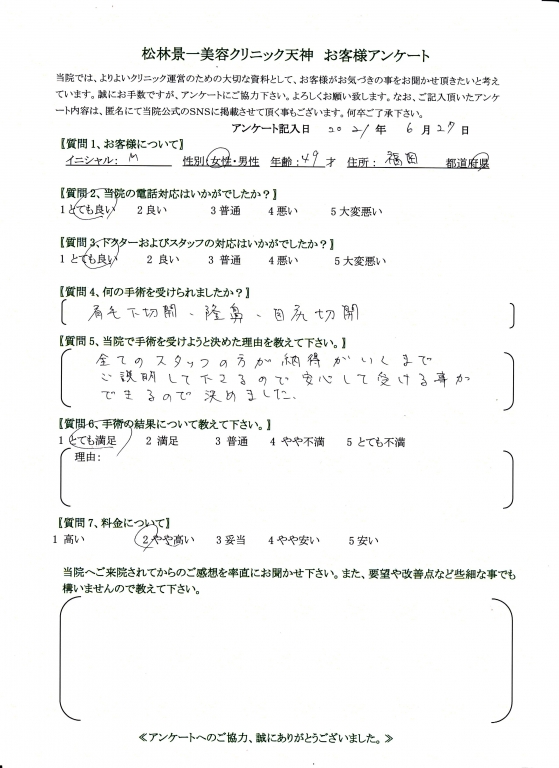 松林景一美容クリニック天神　お客様アンケート
当院では、よりよいクリニック運営のための大切な資料として、お客様がお気づきの事をお聞かせ頂きたいと考え
ています。誠にお手数ですが、アンケートにご協力下さい。よろしくお願い致します。なお、ご記入頂いたアンケ
ート内容は、匿名にて当院公式のSNSに掲載させて頂く事もございます。何卒ご了承下さい。
アンケート記入日　2021年　6月27日
【質問1、お客様について】
イニシャル：　M　性別：女性・男性　年齢：49才　住所：　福岡　都道府県
【質問2、当院の電話対応はいかがでしたか？】
1 とても良い　2 良い　3 普通　4 悪い　5 大変悪い
【質問3、ドクターおよびスタッフの対応はいかがでしたか？】
1 とても良い　2 良い　3 普通　4 悪い　5 大変悪い
【質問4、何の手術を受けられましたか？】
眉毛下切開、隆鼻、目尻切開
【質問5、当院で手術を受けようと決めた理由を教えて下さい。】
全てのスタッフの方が納得がいくまで
ご説明して下さるので安心して受ける事が
できるので決めました。
【質問6、手術の結果について教えて下さい。】
1 とても満足　2 満足　3 普通　4 やや不満　5 とても不満
理由：
【質問7、料金について】
1 高い　2 やや高い　3 妥当　4 やや安い　5 安い
当院へご来院されてからのご感想を率直にお聞かせ下さい。また、要望や改善点など些細な事でも
構いませんので教えて下さい。
≪アンケートへのご協力、誠にありがとうございました。≫